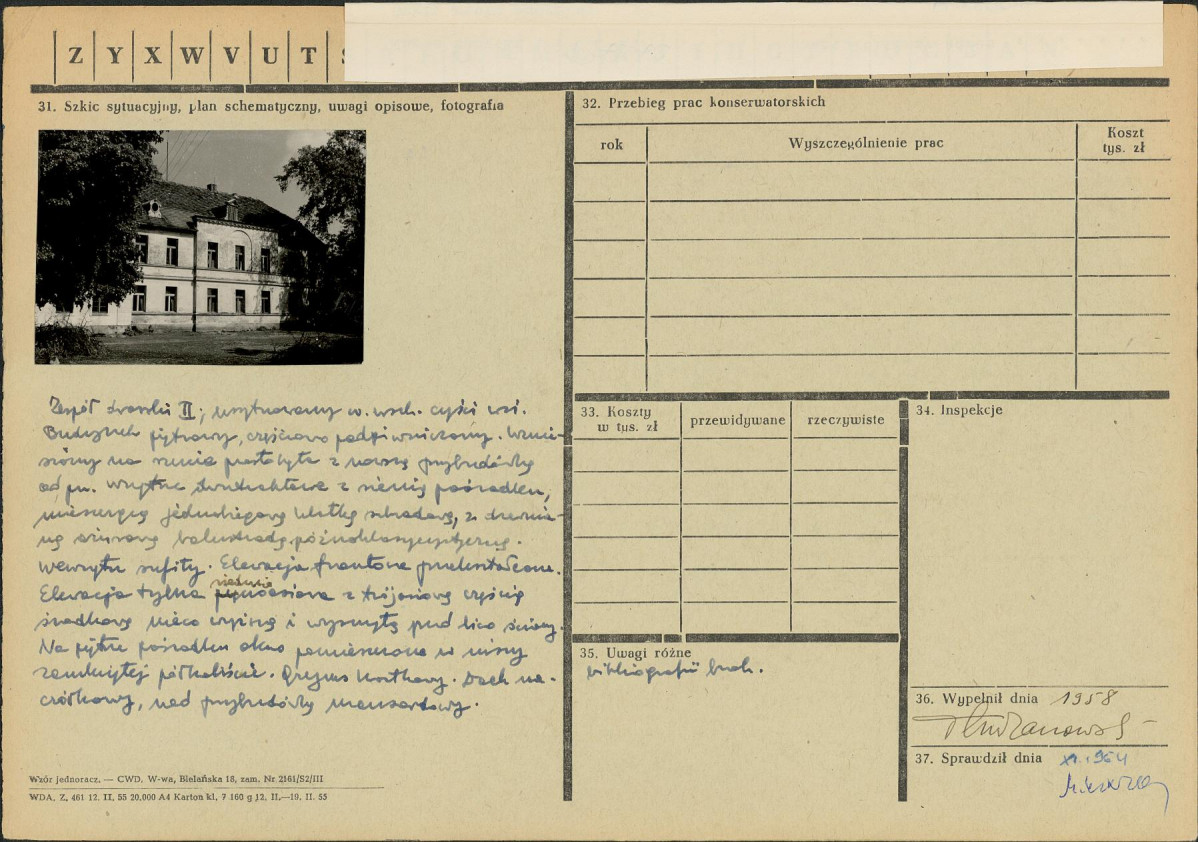 Z Y X W V U T
31. Szkic sytuacyjny, plan schematyczny, uwagi opisowe, fotografia
Zespół dworski II; usytuowany w. wsch. części wsi.
Budynek piętrowy, częściowo podpiwniczony. Wznie-
siony na rzucie prostokąta z nowszą przybudówką
od pn. Wnętrze dwutraktowe z sienią pośrodku,
mieszczącą jednobiegową klatkę schodową, z drewnia-
ną ażurową balustradą późnoklasycystyczną.
Wewnątrz sufity. Elewacja frontowa przekształcona.
Elewacja tylna siedmioosiowa z trójosiową częścią
środkową nieco wyższą i wysuniętą przed lico ściany.
Na piętrze pośrodku okno pomieszczone w niszy
zamkniętej półkoliście. Gzyms kostkowy. Dach na-
czółkowy, nad przybudówką mansardowy.
Wzór jednoracz. — CWD, W-wa, Bielańska 18, zam. Nr 2161/S2/III
WDA, Z, 461 12. II, 55 20,000 A4 Karton kl, 7 160 g 12, II.—19. II. 55
32. Przebieg prac konserwatorskich
rok
Wyszczególnienie prac
Koszt
tys. zł
33. Koszty
w tys. zł
przewidywane
rzeczywiste
34. Inspekcje
35. Uwagi różne
bibliografii brak.
36. Wypełnił dnia 1958
37. Sprawdził dnia XI. 1964